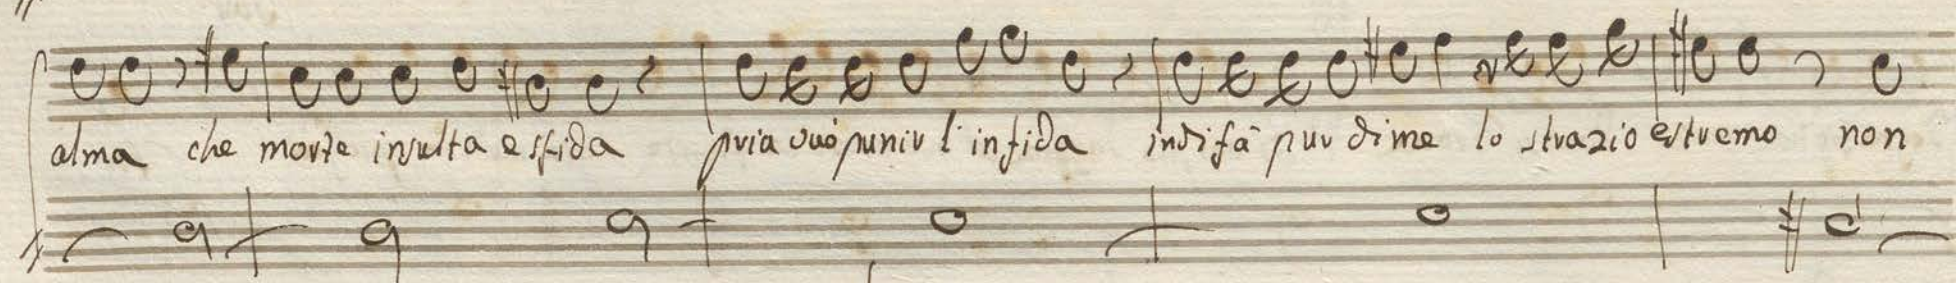 alma che morte insulta e sfida pria vuò punir l'infida indi fà pur di me lo strazio estremo non